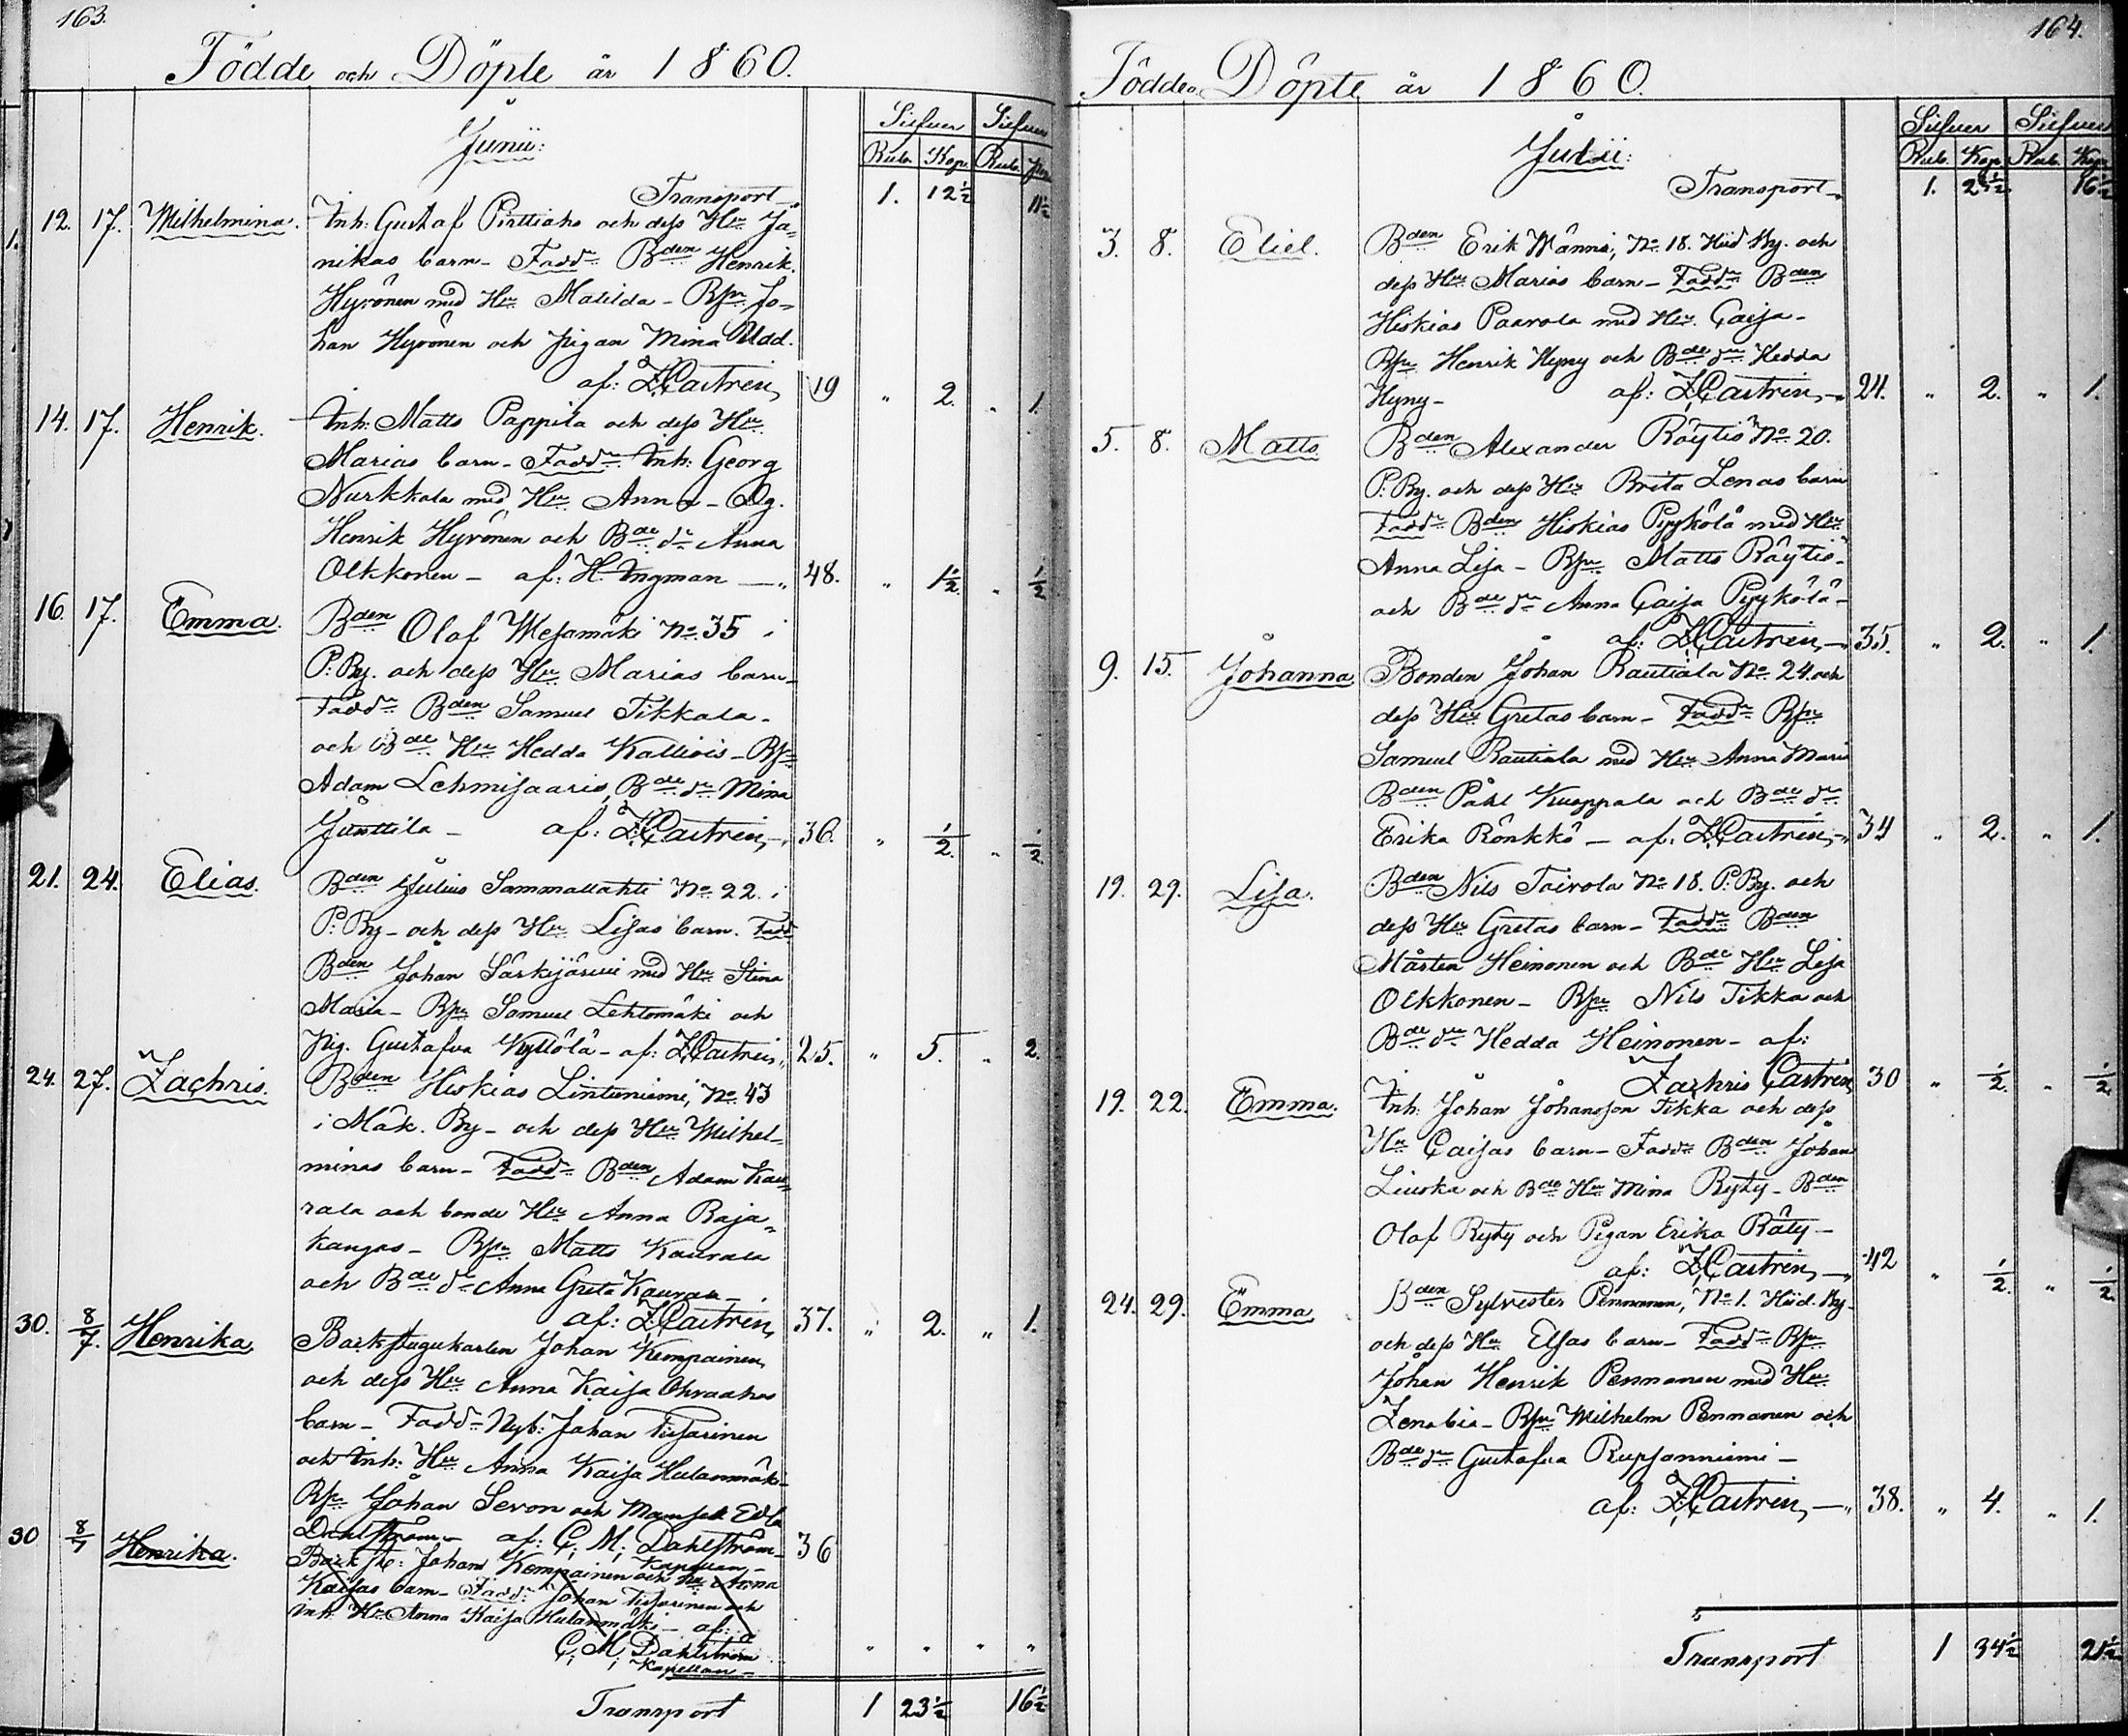 163.
Födde och Döpte år 1860.
Junii:
Silfver Silfver
Rub. Kop. Rub.
Transport 1. 12½ 11½
12. 17. Wilhelmina. Inh: Gustaf Pirttiaho och dess Hu Ja=
nikas barn - Faddr Bden Henrik
Hyvönen med Hu Matilda - Bsn Jo=
han Hyvönen och pigan Mina Udd.
af: Z. Castrén, 19 " 2. " 1.
14. 17. Henrik. Inh: Matts Pappila och dess Hu
Marias barn - Faddr Inh: Georg
Nurkkala med Hu Anna - Dg.
Henrik Hyvönen och Bde dr Anna
Olkkonen - af: H. Ingman - 48. " 1½ " ½
16. 17. Emma. Bden Olof Wesamäki No 35 i
P: By. och dess Hu Marias barn -
Faddr Bden Samuel Tikkala -
och Bde Hu Hedda Kalliois - Bsn
Adam Lehmisaaris, Bde dr Mina
Junttila - af: Z. Castrén, - 36. " ½. " ½.
21. 24. Elias. Bden Julius Sammallahti No 22. i
P: By - och dess Hu Lisas barn. Fadd
Bden Johan Särkijärvi med Hu Stina
Maria - Bsn Samuel Lehtomäki och
Pig. Gustafva Kyllölä - af: Z. Castrén, 25. " 5. " 2.
24. 27. Zachris. Bden Hiskias Lintuniemi, No 43
i Mäk. By - och dess Hu Wilhel=
minas barn - Faddr Bden Adam Kau=
rala och bonde Hu Anna Raja=
kangas - Bsn Matts Kaurala
och Bde dr Anna Greta Kaurala -
af: Z. Castrén, 37. " 2. " 1.
30. 8/7. Henrika Backstugukarlen Johan Kempainen
och dess Hu Anna Kaisa Ohraahos
barn - Faddr Nyb: Johan Tissarinen
och Inh: Hu Anna Kaisa Hulanmäki
Bsn Johan Sevon och Mamsell Edla
Dahlström - af: C. M. Dahlström - 36
Kapellan -
30 8/7 Henrika. Backst: Johan Kempainen och Hu Anna
Kaisas barn - Faddr: Johan Tissarinen och
Inh: Hu Anna Kaisa Hulanmäki - af:
C. M. Dahlström " " " "
Kapellan -
Transport 1 23½ 16½
164.
Födde o. Döpte år 1860.
Julii:
Silfver Silfver
Rub. Kop. Rub. Kop.
Transport 1. 23½ 16½
3. 8. Eliel. Bden Erik Wänni, No 18. Hiid By. och
dess Hu Marias barn - Faddr Bden
Hiskias Paavola med Hu. Caisa -
Bsn Henrik Hyny och Bde dr Hedda
Hyny - af: Z. Castrén, - 24. " 2. " 1.
5. 8. Matts Bden Alexander Räytiö No 20.
P: By. och dess Hu Brita Lenas barn
Faddr Bden Hiskias Pyykölä med Hu
Anna Lisa - Bsn Matts Räytiö -
och Bde dr Anna Caisa Pyykölä -
af: Z. Castrén, - 35. " 2. " 1.
9. 15. Johanna Bonden Johan Rautiala No 24 och
dess Hu Gretas barn - Faddr Bsn
Samuel Rautiala med Hu Anna Maria
Bden Påhl Knuppala och Bde dr
Erika Rönkkö - af: Z. Castrén, - 34 " 2. " 1.
19. 29. Lisa. Bden Nils Toivola No 18. P: By. och
dess Hu Gretas barn - Faddr Bden
Mårten Heinonen och Bde Hu Lisa
Olkkonen - Bsn Nils Tikka och
Bde dr Hedda Heinonen - af:
Zachris Castrén, 30 " ½. " ½.
19. 22. Emma. Inh: Johan Johansson Tikka och dess
Hu Caisas barn - Faddr Bden Johan
Liuska och Bde Hu Mina Ryty - Bden
Olof Ryty och Pigan Erika Räty -
af: Z. Castrén, - 42 " ½. " ½.
24. 29. Emma Bden Sylvester Pennanen, No 1. Hiid. By -
och dess Hu Elsas barn - Faddr Bsn
Johan Henrik Pennanen med Hu
Zenobia - Bsn Wilhelm Pennanen och
Bde dr Gustafva Rupsanniemi -
af: Z. Castrén, - 38. " 4. " 1.
Transport 1 34½ 21½